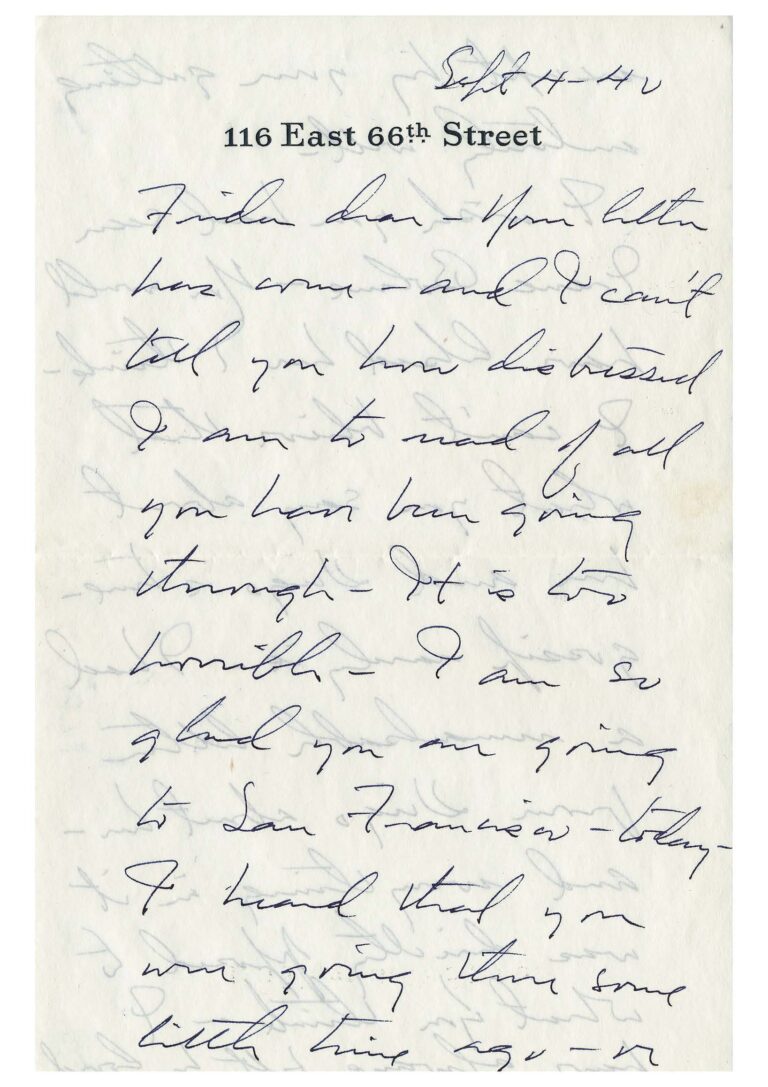 Sept 4-40
116 East 66th Street
Frida dear – Your letter
has come – and I can't
tell you how distressed
I am to read of all
you have been going
through – It is too
horrible – I am so
glad you are going
to San Francisco – today –
I heard that you
were going there some
little time ago – or